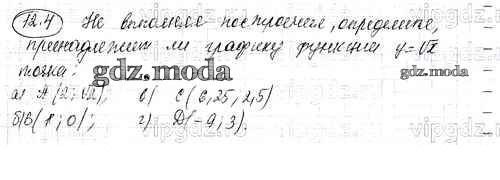 12.4 Не выполняя построения, определите,
принадлежит ли графику функции y=√x
точка:
gdz.moda gdz.moda
а) A(2; √2), в) C(6,25; 2,5)
б) B(1; 0); г) D(-9; 3).
vipgdz.ru